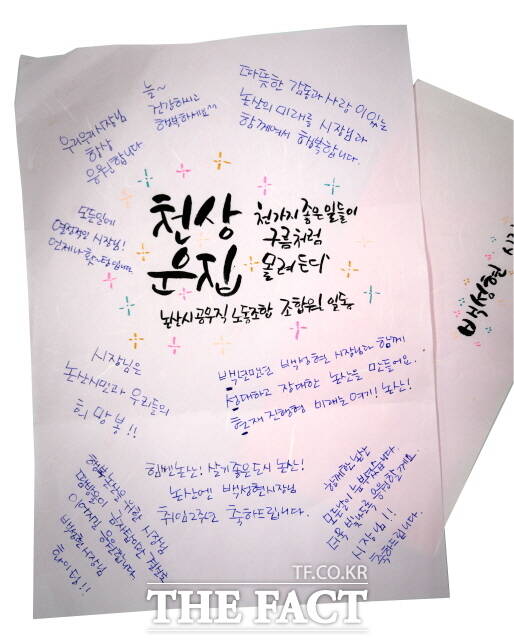 늘~
건강하시고
행복하세요^^
따뜻한 감동과 사랑이 있는
논산의 미래를 시장님과
함께여서 행복합니다.
우리우리시장님
항상
응원합니다
모든일에
열정적인 시장님!
언제나 홧~팅입니다
천상
운집
천가지 좋은 일들이
구름처럼
몰려든다
논산시공무직 노동조합 조합원 일동
백성현 시
시장님은
논산시민과 우리들의
희망봉!!
백년만년 백성현 시장님과 함께
성대하고 장대한 논산을 만들어요.
현재 진행형 미래는 여기! 논산!
힘쎈논산! 살기좋은도시 논산!
논산에 백성현시장님
취임2주년 축하드립니다.
행복논산을 위한 시장님
땀방울이 값진 결실로
이어지길 응원합니다
백성현시장님
화이팅!!
함께한 논산
모든날이 눈부셨습니다.
더욱 빛나도록 응원할게요
시장님!!
축하드립니다.
TF.CO.KR
THE FACT